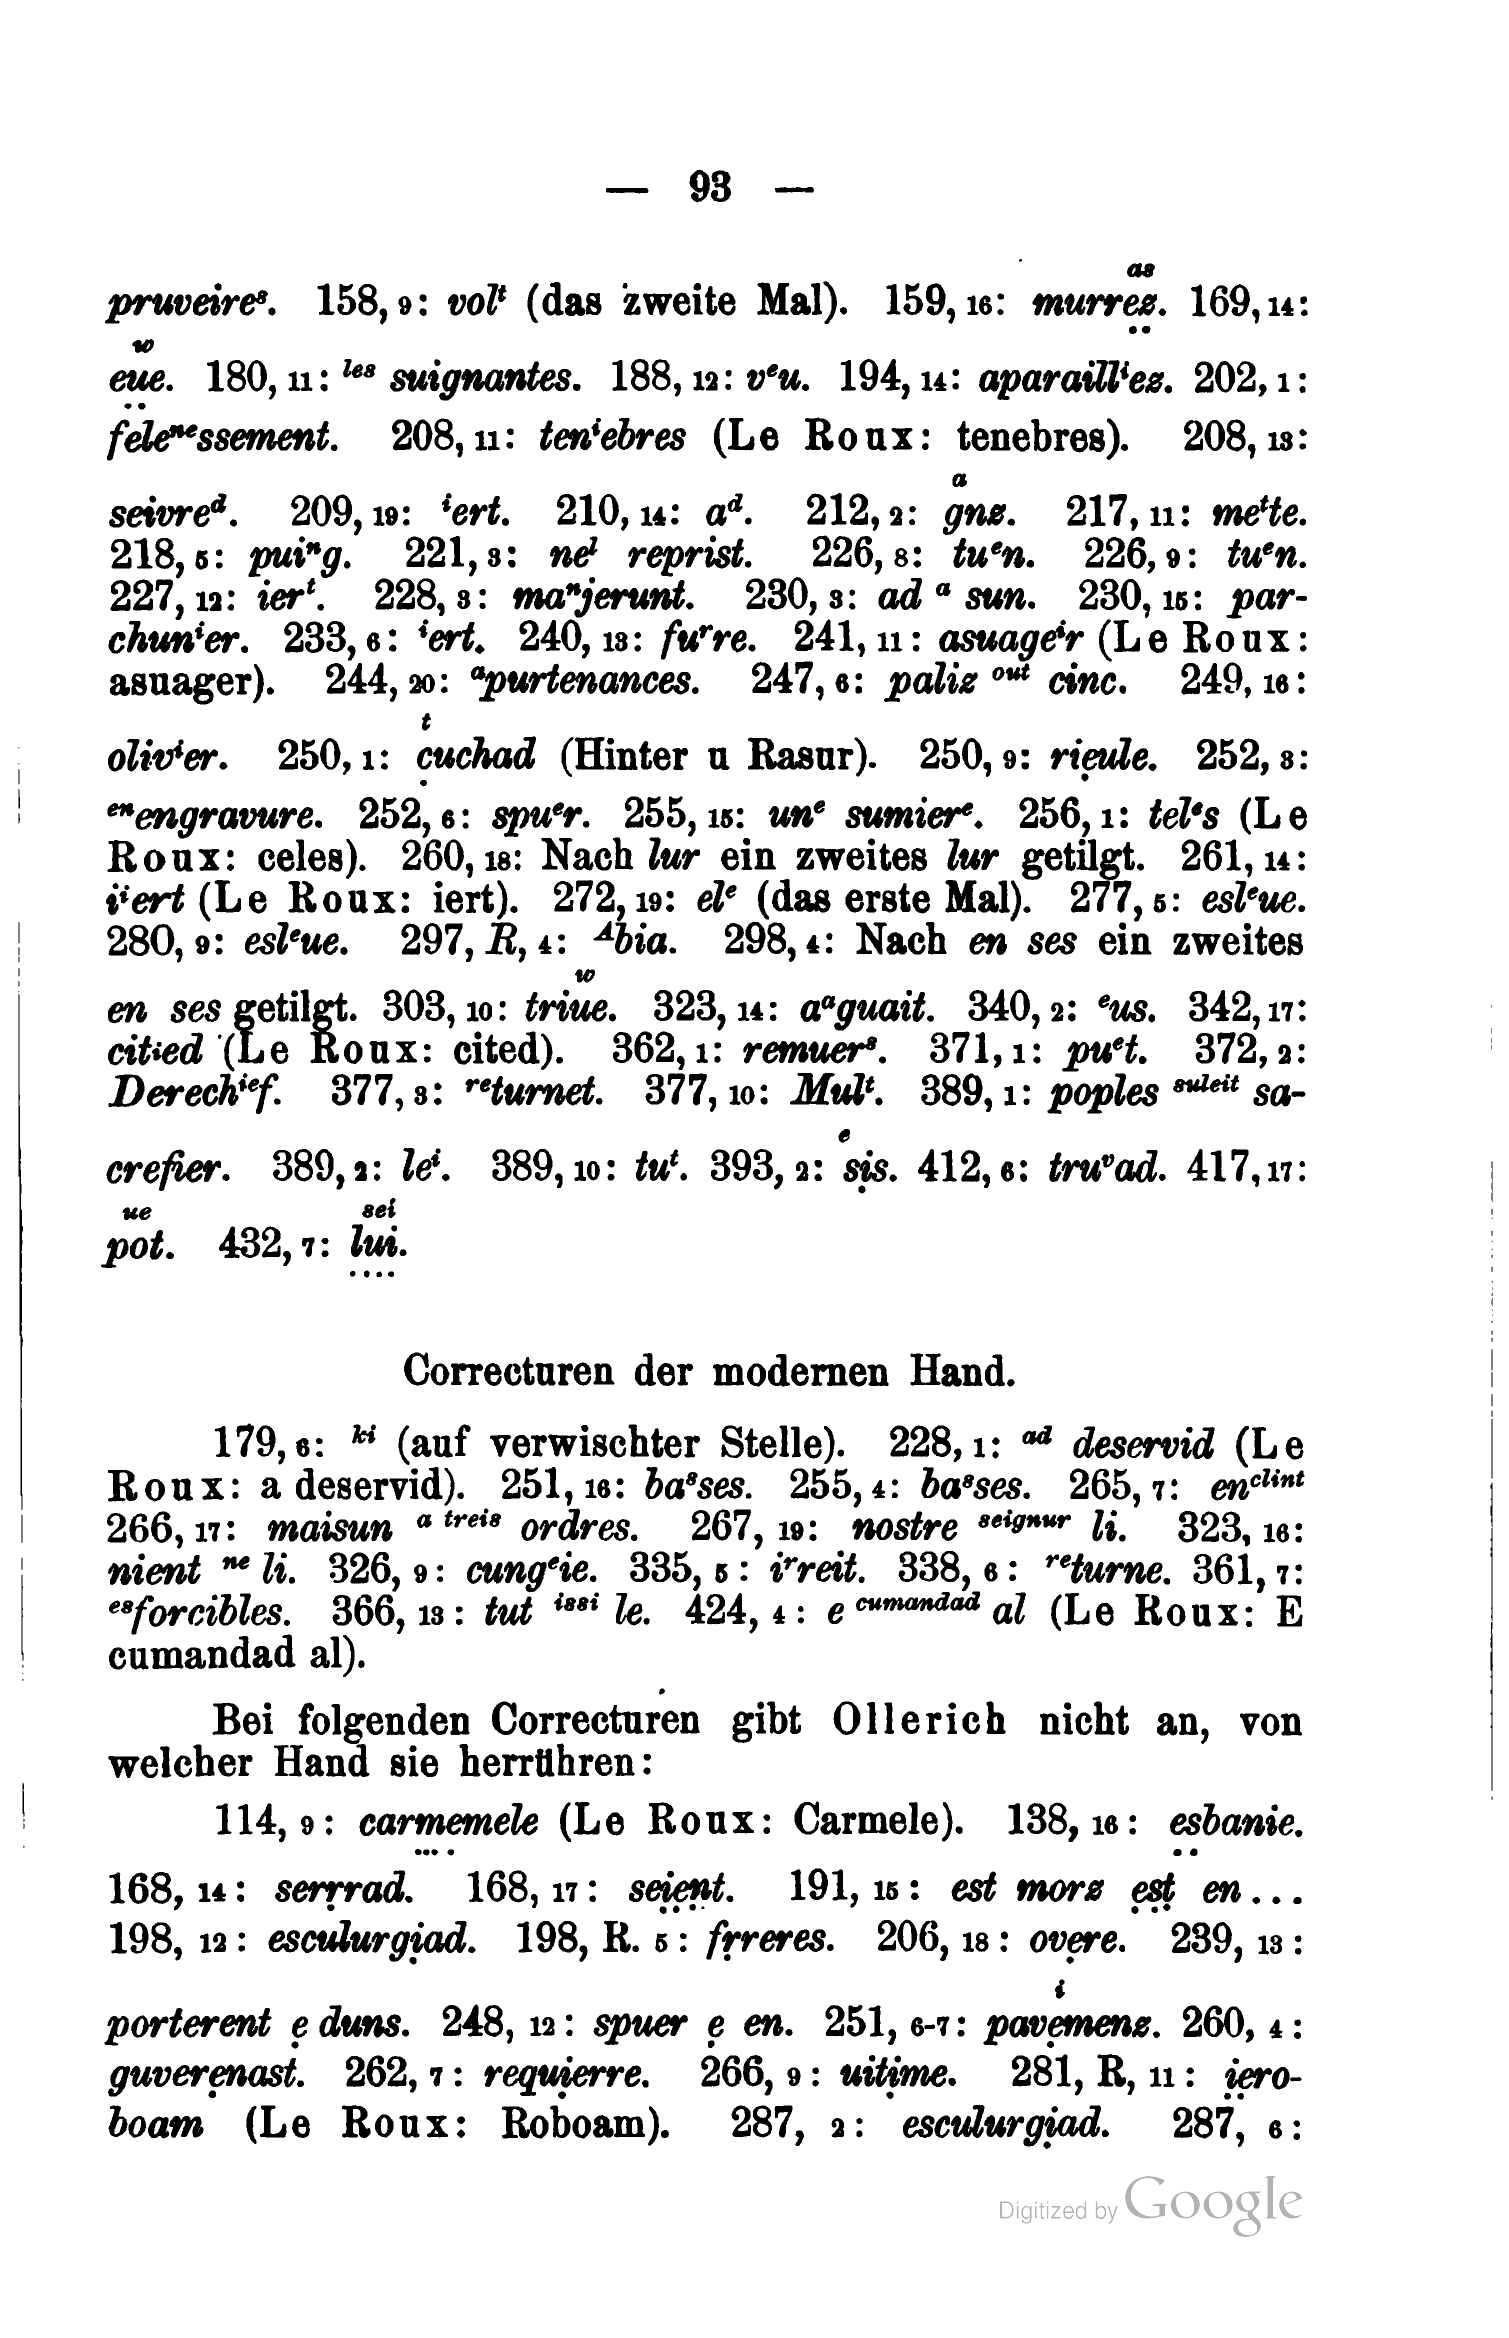 — 93 —
as
pruveireˢ. 158, 9: volᵗ (das zweite Mal). 159, 16: murrez. 169, 14:
w
eue. 180, 11: ˡᵉˢ suignantes. 188, 12: vᵉu. 194, 14: aparaillⁱez. 202, 1:
feleⁿᵉssement. 208, 11: tenⁱebres (Le Roux: tenebres). 208, 13:
a
seivreᵈ. 209, 19: ⁱert. 210, 14: aᵈ. 212, 2: gnz. 217, 11: meᵗte.
218, 5: puiⁿg. 221, 3: neˡ reprist. 226, 8: tuᵉn. 226, 9: tuᵉn.
227, 12: ierᵗ. 228, 3: maⁿjerunt. 230, 3: ad ᵃ sun. 230, 15: par-
chunⁱer. 233, 6: ⁱert. 240, 13: fuʳre. 241, 11: asuageⁱr (Le Roux:
asuager). 244, 20: ᵃpurtenances. 247, 6: paliz ᵒᵘᵗ cinc. 249, 16:
t
olivⁱer. 250, 1: c̣uchad (Hinter u Rasur). 250, 9: riẹule. 252, 3:
ᵉⁿengravure. 252, 6: spuᵉr. 255, 15: unᵉ sumierᵉ. 256, 1: telᵉs (Le
Roux: celes). 260, 18: Nach lur ein zweites lur getilgt. 261, 14:
ïⁱert (Le Roux: iert). 272, 19: elᵉ (das erste Mal). 277, 5: eslᵉue.
280, 9: eslᵉue. 297, R, 4: ᴬbia. 298, 4: Nach en ses ein zweites
w
en ses getilgt. 303, 10: triue. 323, 14: aᵃguait. 340, 2: ᵉus. 342, 17:
citⁱed (Le Roux: cited). 362, 1: remuerˢ. 371, 1: puᵉt. 372, 2:
Derechⁱᵉf. 377, 3: ʳᵉturnet. 377, 10: Mulᵗ. 389, 1: poples ˢᵘˡᵉⁱᵗ sa-
e
crefier. 389, 2: leⁱ. 389, 10: tuᵗ. 393, 2: sịs. 412, 6: truᵛad. 417, 17:
ue sei
pot. 432, 7: lui.
Correcturen der modernen Hand.
179, 6: ᵏⁱ (auf verwischter Stelle). 228, 1: ᵃᵈ deservid (Le
Roux: a deservid). 251, 16: baˢses. 255, 4: baˢses. 265, 7: enᶜˡⁱⁿᵗ
266, 17: maisun ᵃ ᵗʳᵉⁱˢ ordres. 267, 19: nostre ˢᵉⁱᵍⁿᵘʳ li. 323, 16:
nient ⁿᵉ li. 326, 9: cungᵉie. 335, 5: iʳreit. 338, 6: ʳᵉturne. 361, 7:
ᵉˢforcibles. 366, 13: tut ⁱˢˢⁱ le. 424, 4: e ᶜᵘᵐᵃⁿᵈᵃᵈ al (Le Roux: E
cumandad al).
Bei folgenden Correcturen gibt Ollerich nicht an, von
welcher Hand sie herrühren:
114, 9: carmemele (Le Roux: Carmele). 138, 16: esbanie.
168, 14: serṛrad. 168, 17: seịẹṇt. 191, 15: est morz ẹṣṭ en...
198, 12: esculurgịad. 198, R. 5: fṛreres. 206, 18: ovẹre. 239, 13:
i
porterent ẹ duns. 248, 12: spuer ẹ en. 251, 6-7: pavẹmenz. 260, 4:
guverẹnast. 262, 7: requịerre. 266, 9: uitịme. 281, R, 11: ịẹro-
boam (Le Roux: Roboam). 287, 2: esculurgịad. 287, 6:
Digitized by Google